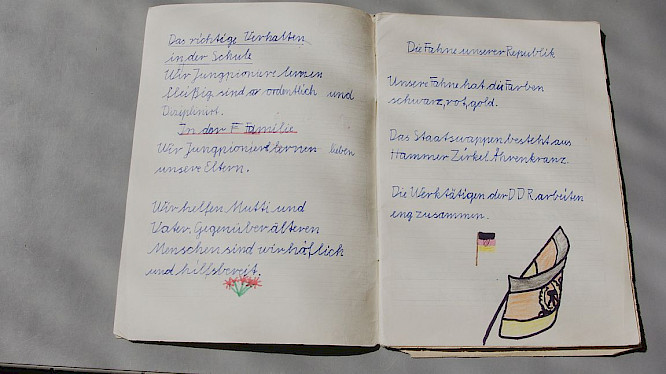 Das richtige Verhalten
in der Schule
Wir Jungpioniere lernen
fleißig sind or ordentlich und
Diziplinirt.
In der F Familie
Wir Jungpioniere lernen lieben
unsere Eltern.
Wir helfen Mutti und
Vater. Gegenüber älteren
Menschen sind wir höflich
und hilfsbereit.
Die Fahne unserer Republik
Unsere Fahne hat die Farben
schwarz, rot, gold.
Das Staatswappen besteht aus
Hammer Zirkel Ährenkranz.
Die Werktätigen der DDR arbeiten
eng zusammen.